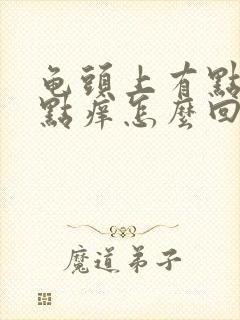 龟頭上有點
點痒怎麼回
魔道弟子